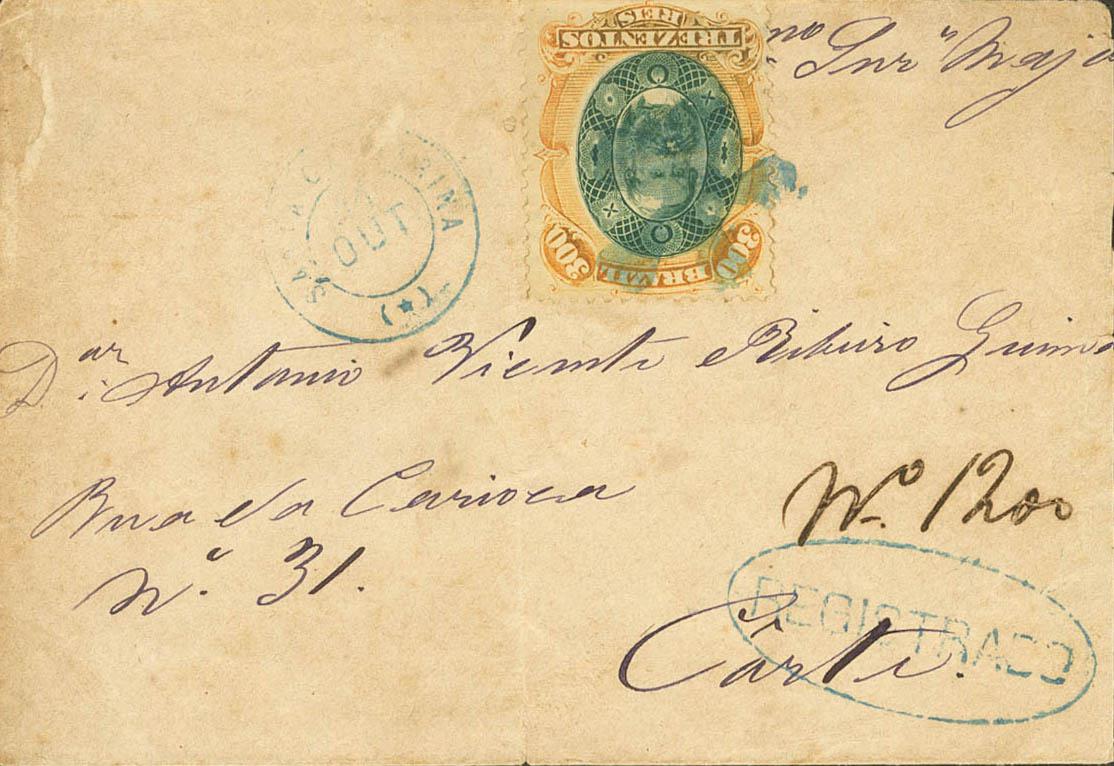 TREZENTOS
REIS
300 BRAZIL 300
SANTA CATHARINA
OUT
(*)
mo Snr Major
Dor Antonio Vicente Ribeiro Guima
Rua da Carioca
No. 31.
No. 1200
REGISTRADO
Côrte.